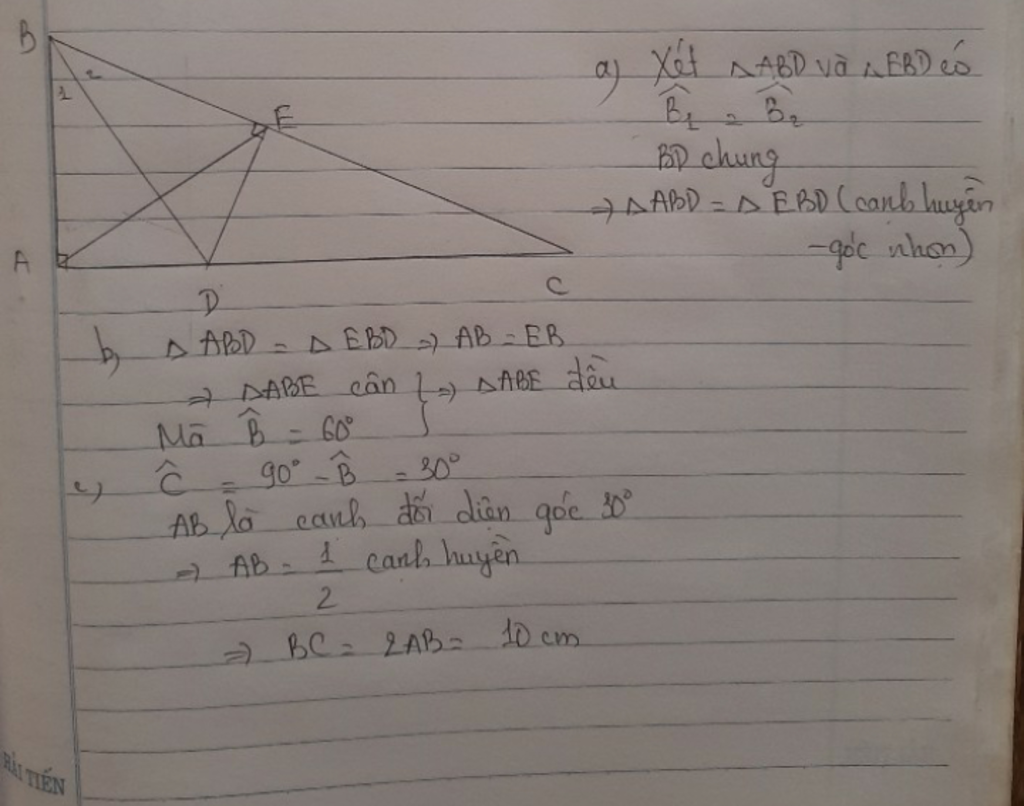 B
1
2
E
A
D
C
a) Xét △ABD và △EBD có
B̂₁ = B̂₂
BD chung
⇒ △ABD = △EBD (cạnh huyền
-góc nhọn)
b) △ABD = △EBD ⇒ AB = EB
⇒ △ABE cân } ⇒ △ABE đều
Mà B̂ = 60°
c) Ĉ = 90° - B̂ = 30°
AB là cạnh đối diện góc 30°
⇒ AB = 1/2 cạnh huyền
⇒ BC = 2AB = 10 cm
HẢI TIẾN